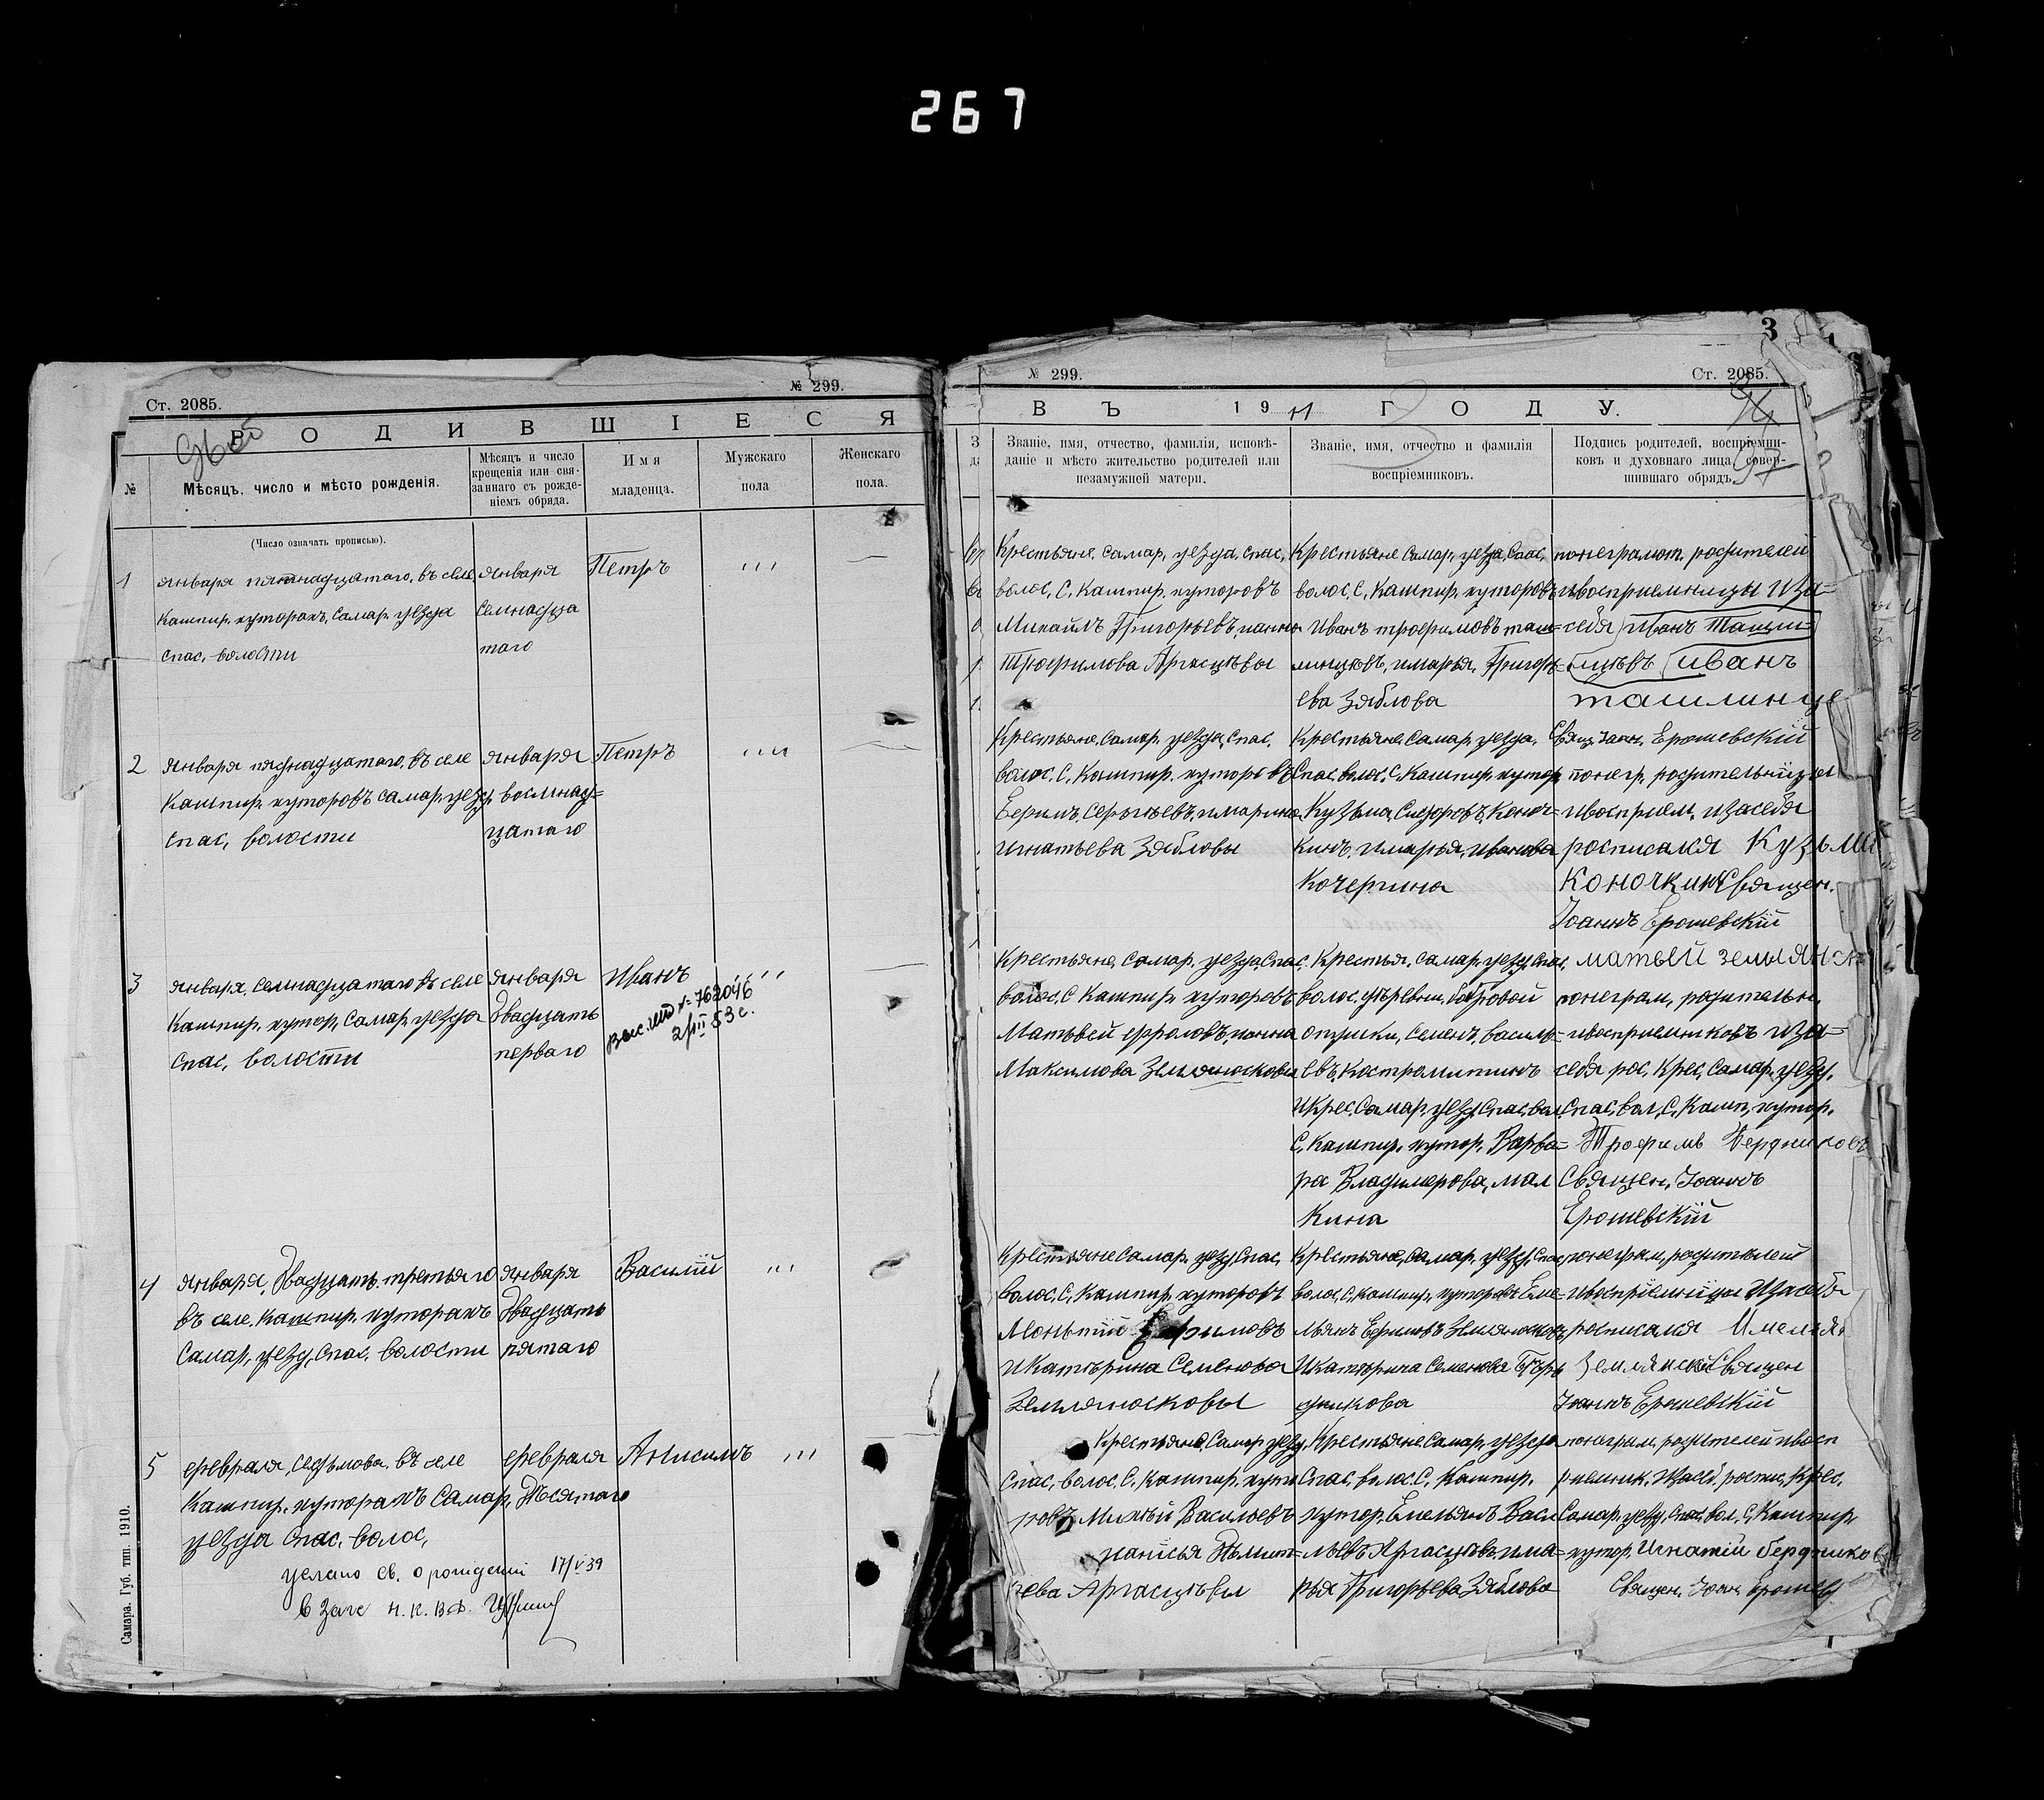 267
Ст. 2085.
№ 299.
РОДИВШІЕСЯ
№
Мѣсяцъ, число и мѣсто рожденія.
(Число означать прописью).
Мѣсяцъ и число
крещенія или свя-
заннаго съ рожде-
ніемъ обряда.
Имя
младенца.
Мужскаго
пола
Женскаго
пола.
1
января пятнадцатаго, въ селе
Кашпир. хуторахъ, Самар. уезда
Спас. волости
января
семнадца
таго
Петръ
2
января пяднадцатаго, въ селе
Кашпир. хуторовъ самар. уезд.
спас, волости
января
восмнад=
цатаго
Петръ
3
января, семнадцатаго въ селе
Кашпир. хутор, самар. уезда
спас, волости
января
двадцать
перваго
Иванъ
4
января, двадцать третьяго
въ селе, кашпир. хуторахъ
самар, уезд, спас. волости
января
двадцать
пятаго
Василій
5
февраля, седьмова, въ селе
Кашпир. хуторахъ самар,
уезда спас. волос,
февраля
Анисимъ
17/VI 39
Самара. Губ. тип. 1910.
3
№ 299.
Ст. 2085.
ВЪ 1911 ГОДУ.
Званіе, имя, отчество, фамилія, исповѣ-
даніе и мѣсто жительство родителей или
незамужней матери.
Званіе, имя, отчество и фамилія
воспріемниковъ.
Подпись родителей, воспріемни-
ковъ и духовнаго лица, совер-
шившаго обрядъ.
Крестьяне, самар, уезда, спас,
волос, С, Кашпир, хуторовъ
Михайлъ Григорьевъ, ианна
Трофимова Аргасцѣвы
Крестьяне Самар, уезда, Спас,
волос, С, Кашпир, хуторовъ
Иванъ трофимовъ таш=
линцовъ, имарья, Григорь=
ева Зяблова
понеграмот. родителей
ивосприемницы иза=
себя Иванъ Ташли=
нцѣвъ Иванъ
ташлинце
Свящ. Іоан. Ерошевскій
Крестьяне, самар. уезда, спас.
волос. С, Кашпир. хуторовъ
Ефимъ, Сергѣевъ, имарина
игнатьева Зябловы
Крестьяне, самар. уезда,
Спас, волос, С, Кашпир, хутор
Кузьма, Сидоровъ, Коноч=
кинъ, имарья, иванова
Кочергина
понегр, родительницы
ивосприем, изасебя
росписался Кузьма
Коночкинъ Священ.
Іоаннъ Ерошевскій
Крестьяне, самар, уезда, Спас,
волос, С Кашпир. хуторовъ
Матьвей фроловъ, ианна
Максимова Землянсковы
Крестья, самар, уезд, Спас,
Семенъ, василь=
евъ, Костромитинъ
икрес, Самар, уезд, Спас, вол
С, Кашпир, хутор, Варва=
ра Владимерова, мал
кина
матвей землянск
понеграм, родительн.
ивосприемниковъ иза=
себя рос, Крес, Самар, уезд,
Спас, вол, С, Кашп, хутор,
Трофимъ Бердниковъ
Священ, Іоаннъ
Ерошевскій
Крестьяне Самар, уезд, Спас,
волос, С, Кашпир, хуторовъ
Ефимовъ
икатѣрина Семенова
Землянсковы
Крестьяне, Самар, уезд, Спас
волос, С, кашпир, хуторовъ Еме=
льянъ Ефимовъ Землянсковъ,
икатѣрина Семенова Бѣрд
никова
понеграм, родителей
ивоспріемницы изасебя
росписался Имельян
Землянской Священ
Іоаннъ Ерошевскій
Крестьяне, Самар уезд,
Спас, волос, С, кашпир, хуто
ровъ Васильевъ
Аргасцѣвы
Крестьяне Самар, уезда
Спас, волос, С, Кашпир.
хутор, Емельянъ Васи
льевъ Аргасцѣвъ има=
рья Григорьева Зяблова
понеграм, родителей ивосп
риемник, изасеб, роспис, Крес,
Самар, уезд, Спас, вол, С, Кашпир,
хутор, Игнатій бердников
Священ, Іоан, Ерошев